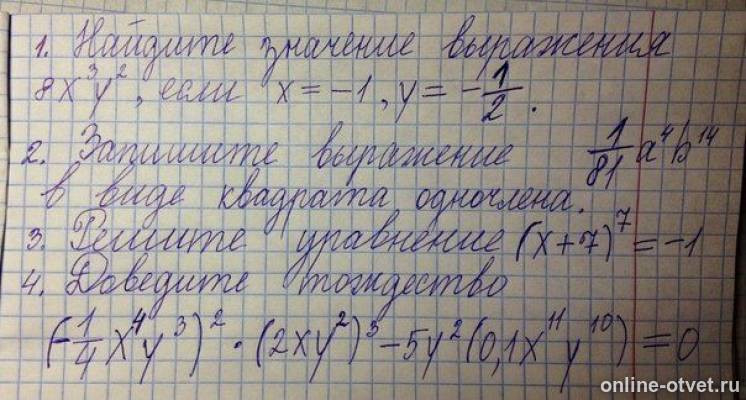 1. Найдите значение выражения
8x³y², если x = -1, y = -1/2.
2. Запишите выражение 1/81 a⁴b¹⁴
в виде квадрата одночлена.
3. Решите уравнение (x+7)⁷ = -1
4. Доведите тождество
(-1/4 x⁴y³)² · (2xy²)³ - 5y²(0,1x¹¹y¹⁰) = 0
online-otvet.ru